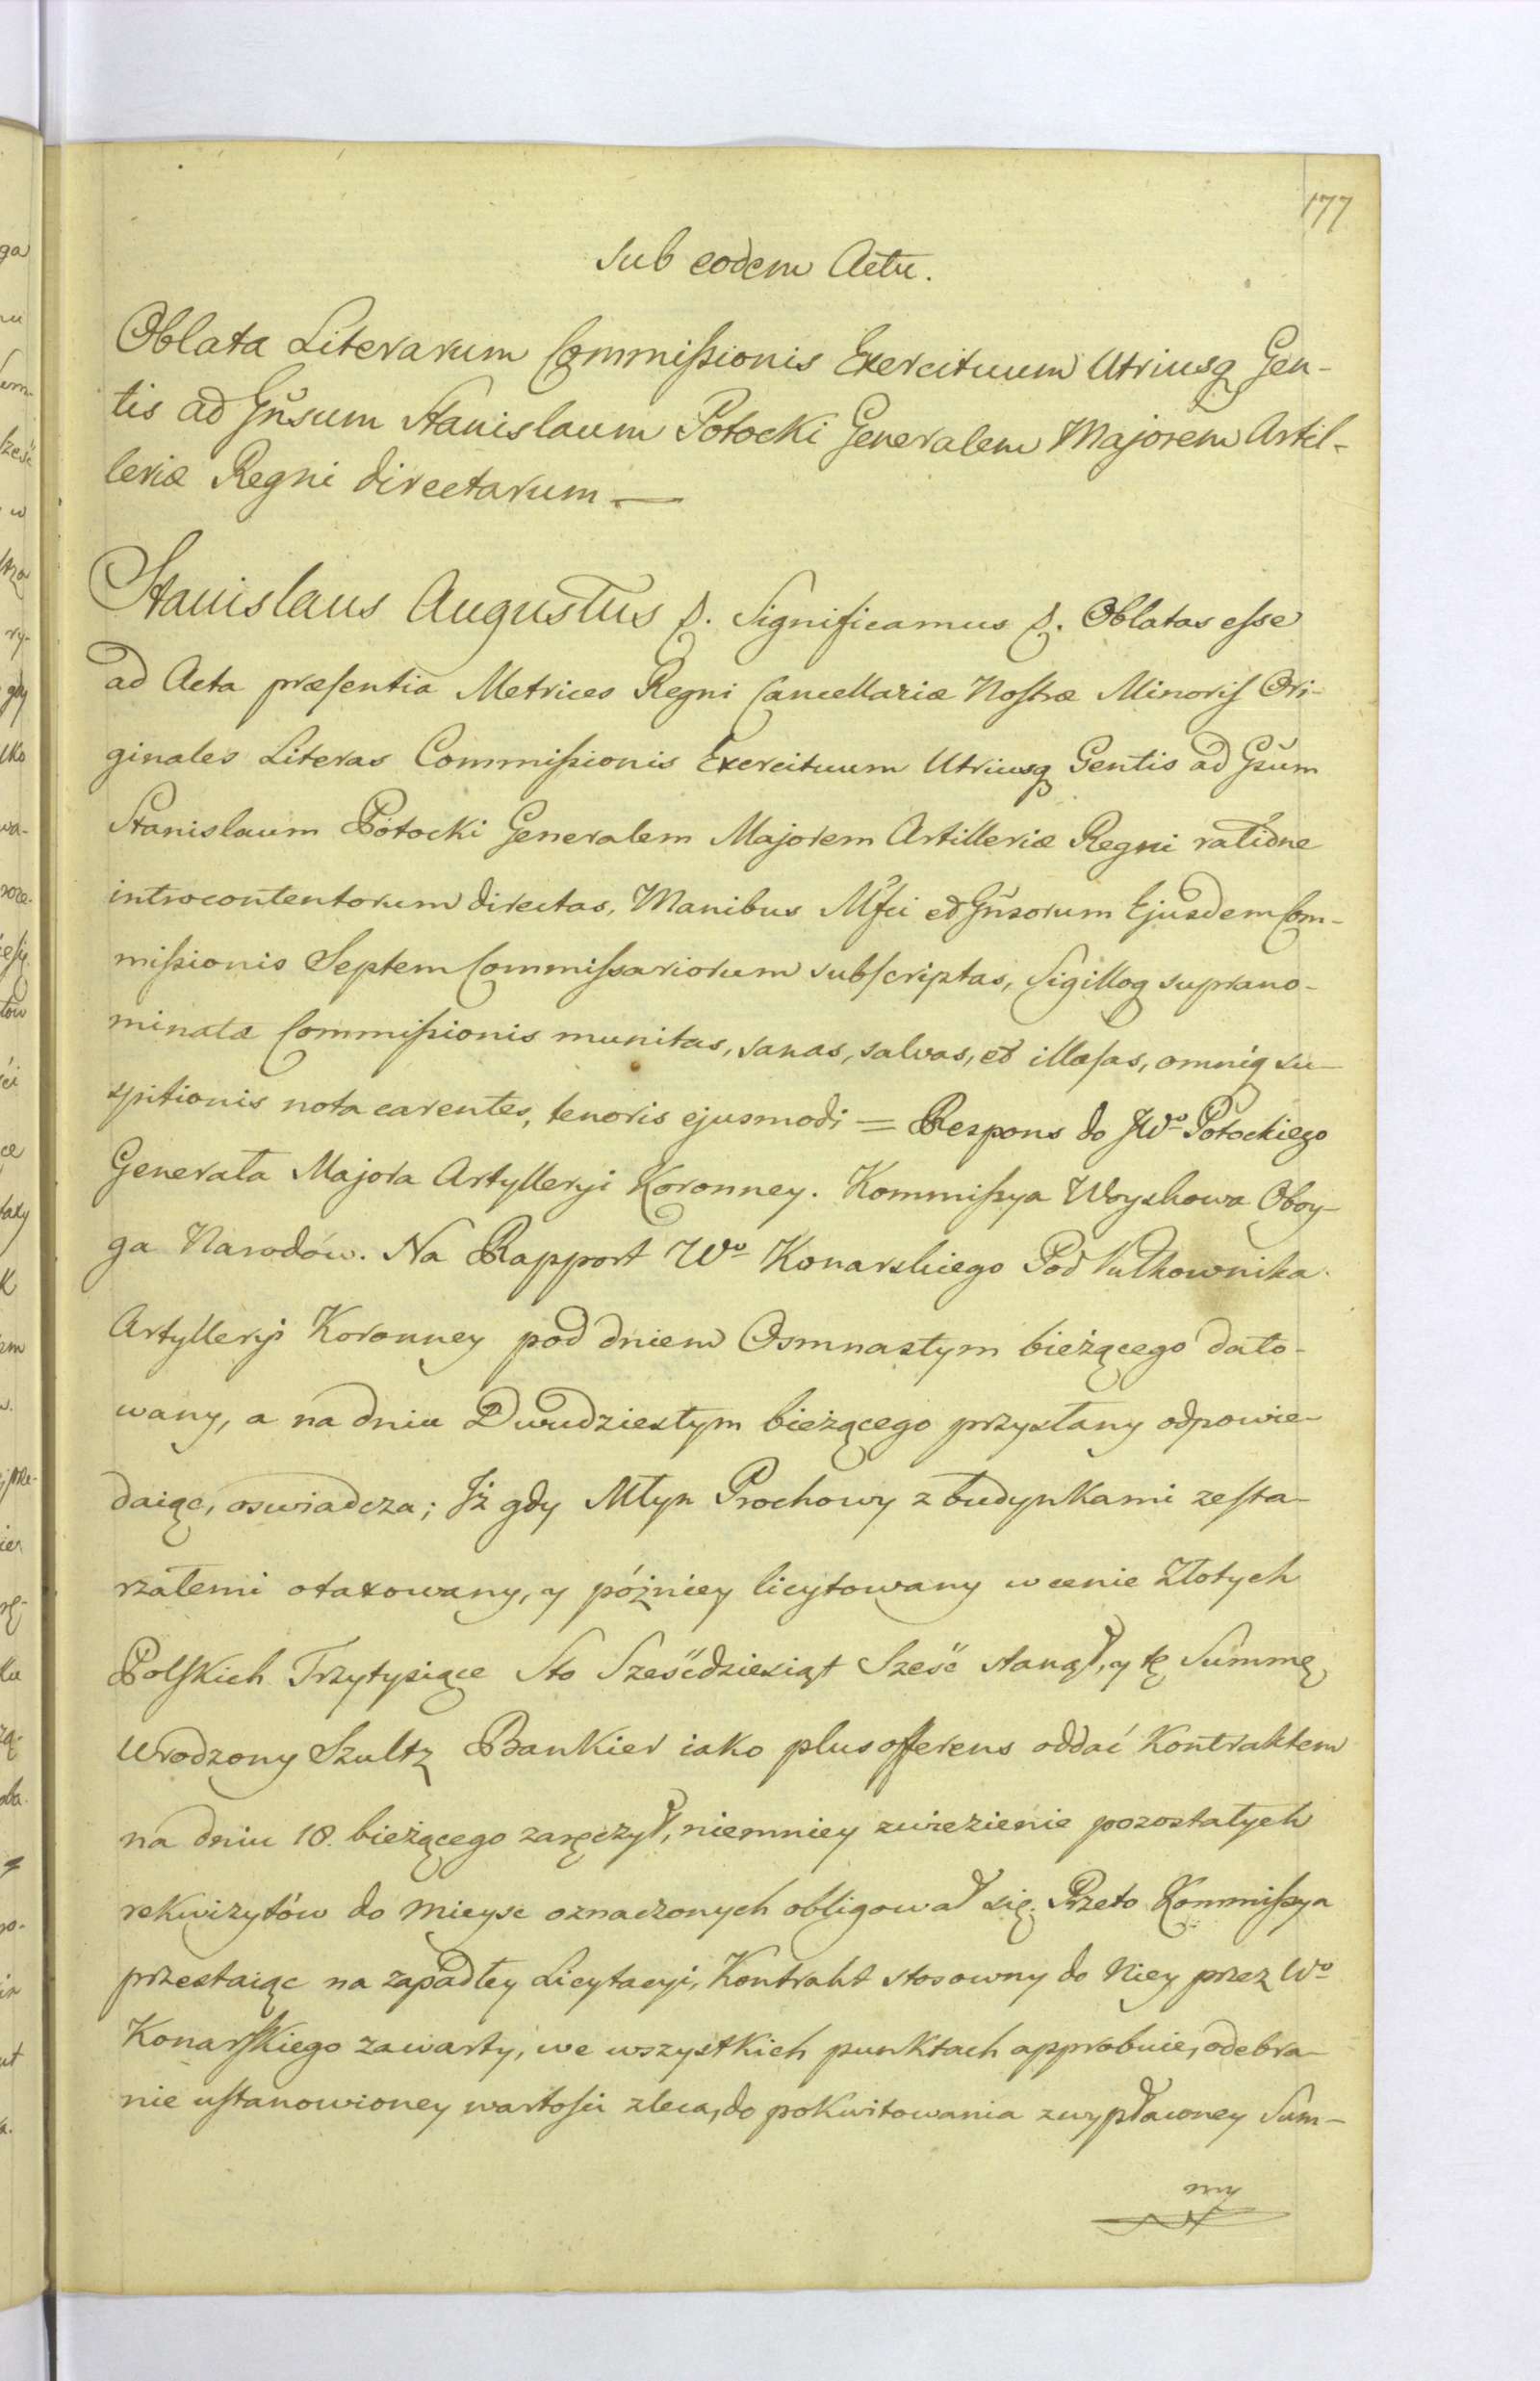 177
sub eodem Actu.
Oblata Literarum Commißionis Exercituum Utriusq Gen-
tis ad Gnsum Stanislaum Potocki Generalem Majorem Artil-
leriæ Regni directarum —
Stanislaus Augustus &. Significamus &. Oblatas eſse
ad Acta præſentia Metrices Regni Cancellariæ Noſtræ Minoriſ Ori-
ginales Literas Commißionis Exercituum Utriusq Gentis ad Gsum
Stanislaum Potocki Generalem Majorem Artilleriæ Regni ratiōne
introcontentorum directas, Manibus Mfci et Gnsorum Ejusdem Com-
mißionis Septem Commiſsariorum subſcriptas, Sigilloq suprano-
minatæ Commißionis munitas, sanas, salvas, et illæſas, omniq su-
spitionis nota carentes, tenoris ejusmodi = Respons do JWo Potockiego
Generała Majora Artylleryi Koronney. Kommißya Woyskowa Oboy-
ga Narodów. Na Rapport Wo Konarskiego Pod Pułkownika
Artylleryi Koronney pod dniem Osmnastym bieżącego dato-
wany, a na dniu Dwudziestym bieżącego przysłany odpowie-
daiąc, oswiadcza; Jż gdy Młyn Prochowy z budynkami zeſta-
rzałemi otaxowany, y późniey licytowany w cenie Złotych
Polſkich Trzytysiące Sto Sześćdziesiąt Sześć stanął, y tę Summę
Urodzony Szultz Bankier iako plus offerens oddać Kontraktem
na dniu 18. bieżącego zaręczył, niemniey zwiezienie pozostałych
rekwizytów do mieysc oznaczonych obligował się. Przeto Kommißya
przestaiąc na zapadłey Licytacyi, Kontrakt stosowny do Niey przez Wo
Konarſkiego zawarty, we wszystkich punktach approbuie, odebra-
nie uſtanowioney wartoſci zleca, do pokwitowania z wypłaconey Sum-
my